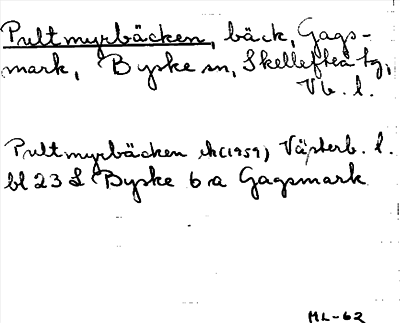 Pultmyrbäcken, bäck, Gags-
mark, Byske sn, Skellefteå tg,
Vb. l.
Pultmyrbäcken ek(1959) Västerb. l.
bl 23 L Byske 6 a Gagsmark
ML-62